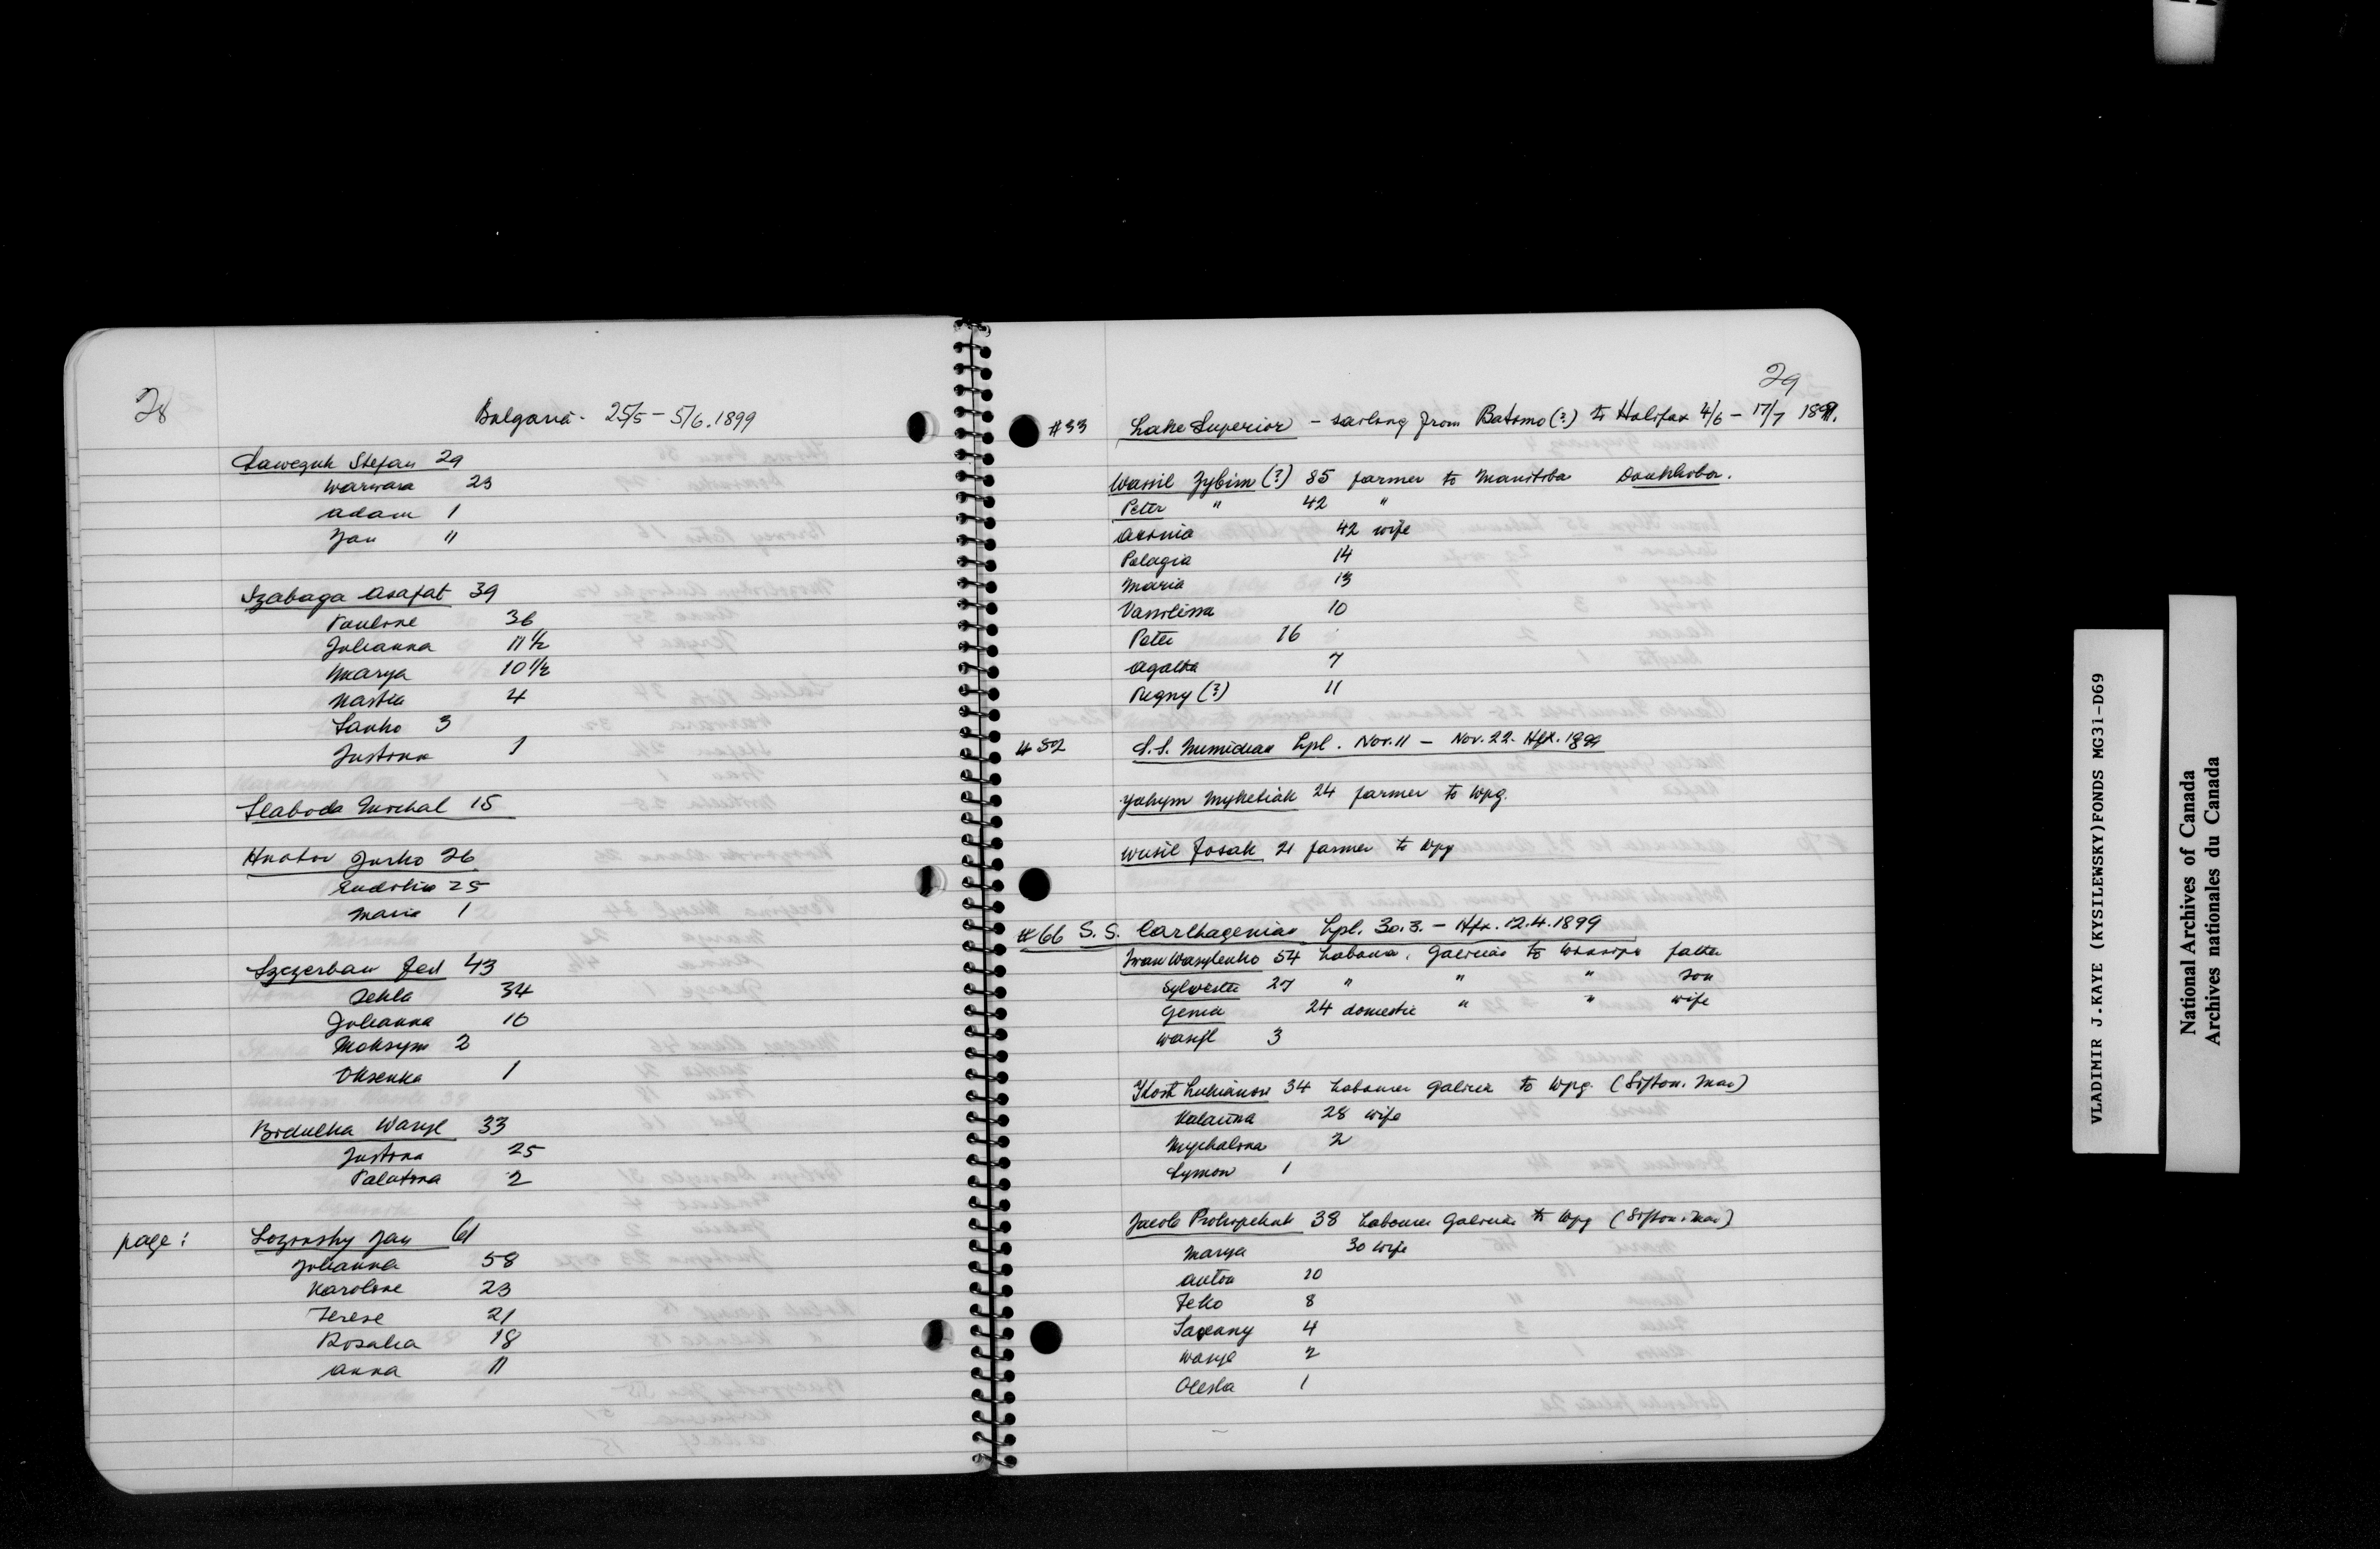 28
Bulgaria - 25/5 - 5/6. 1899
Laweczuk Stefan 29
Warwara 23
Adam 1
Jan "
Szabaga Asafat 39
Pauline 36
Julianna 11 1/2
Marya 10 1/2
Nastia 4
Sanko 3
Justina 1
Slaboda Michal 15
Hnatiw Jurko 26
Eudokia 25
Maria 1
Szczerban Fed 43
Tekla 34
Julianna 16
Maksym 2
Oksenka 1
Bidulka Wasyl 33
Justina 25
Palatona 2
page: Lozinsky Jan 61
Julianna 58
Karoline 23
Terese 21
Rosalia 18
Anna 11
29
#33 Lake Superior - sailing from Batomo (?) to Halifax 4/6 - 17/7 1899.
Wassil Zybin (?) 85 farmer to Manitoba Doukhobor.
Peter " 42 "
Axinia 42 wife
Pelagia 14
Maria 13
Vassilissa 10
Peter 16
Agatha 7
(?) 11
#52 S.S. Numidian Lpl. Nov. 11 - Nov. 22. Hfx. 1899
Yakym Myketiak 24 farmer to Wpg.
Wasil Fosak 21 farmer to Wpg
#66 S.S. Carthagenian Lpl. 30.3. - Hfx. 12.4.1899
Iwan Wasylenko 54 Labourer, Galicia to Winnipeg father
Sylvester 27 " " " son
Genia 24 domestic " " wife
Wasyl 3
Kost Lukianow 34 Labourer Galicia to Wpg. (Sifton. Man)
Kalauna 28 wife
Mychalina 2
Symon 1
Jacob Prokopchuk 38 Labourer Galicia to Wpg (Sifton. Man)
Marya 30 wife
Anton 10
Feko 8
4
Wasyl 2
Oleska 1
VLADIMIR J.KAYE (KYSILEWSKY)FONDS MG31-D69
National Archives of Canada
Archives nationales du Canada